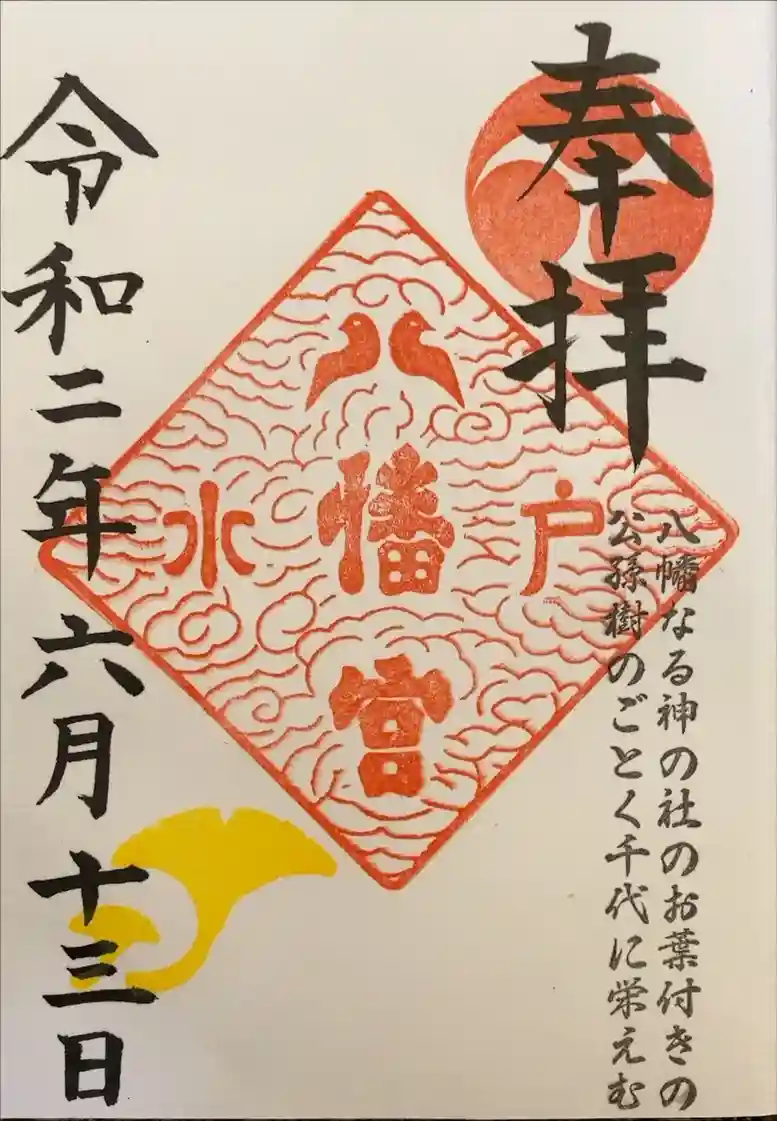 奉拝
八幡なる神の社のお葉付きの
公孫樹のごとく千代に栄えむ
水戸
八幡宮
令和二年六月十三日